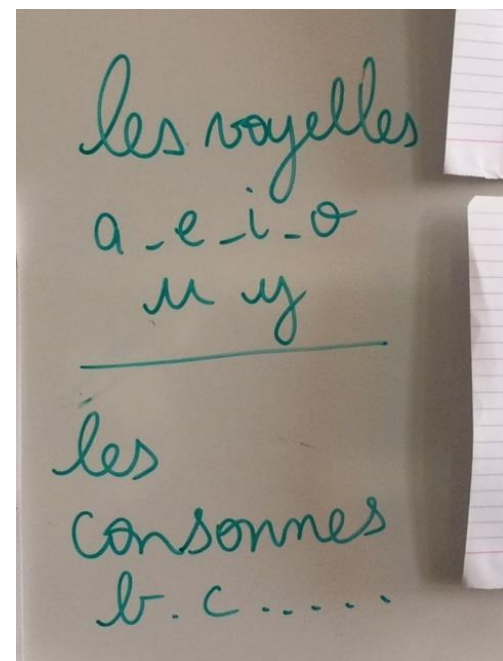 les voyelles
a-e-i-o
u y
les
consonnes
b. c.....